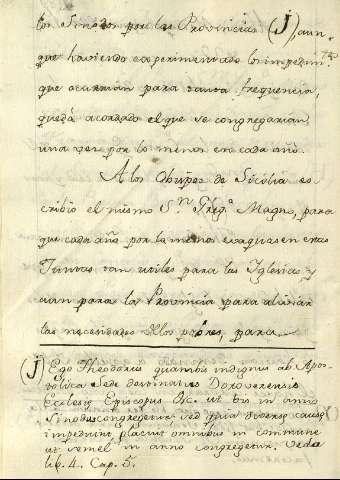 los Sinodos por las Provincias (J), aun-
que haviendo experimentado los impedim.tos
que ocurrian para tanta frequencia,
quedá acordado el que se congregarian,
una vez por lo menos en cada año.
A los Obispos de Sicilia es-
cribio el mismo S.n Greg.o Magno, para
que cada año por lo menos evaquasen estas
Juntas tan utiles para las Iglesias y
aun para la Provincia para aliviar
las necesidades de los pobres, para
(J) Ego Theodorus quamvis indignus ab Apos-
tolica Sede destinatus Dorovernensis
Eclesiæ Episcopus &c. ut bis in anno
Sinodus congregetur sed quia diversæ causæ
impediunt placuit omnibus in commune
ut semel in anno congregetur. Veda
lib. 4. Cap. 5.